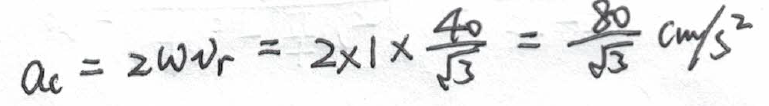 a_c = 2ωv_r = 2×1×40/√3 = 80/√3 cm/s²